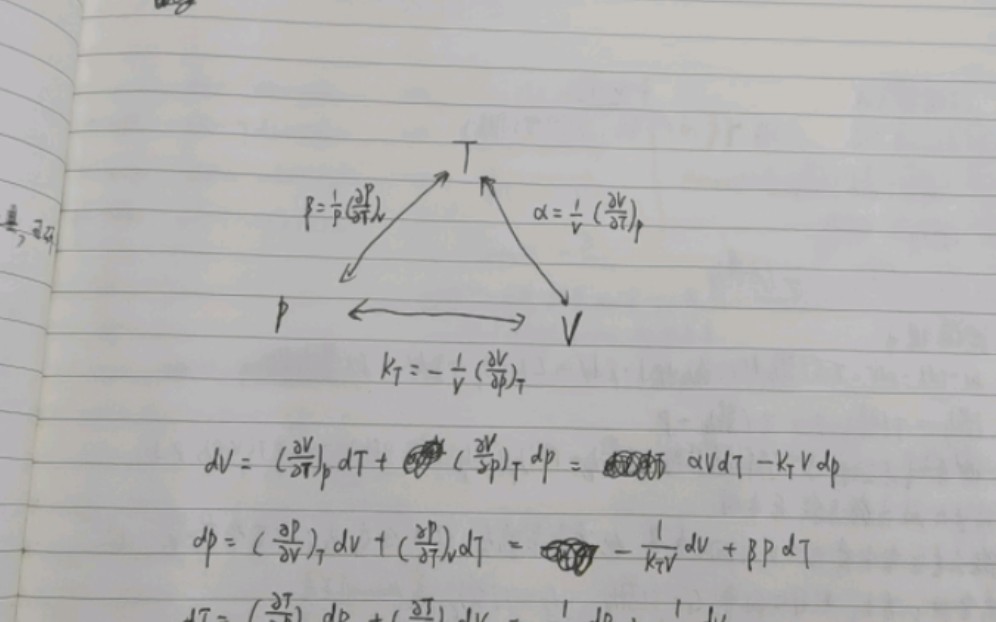 T
β = 1/p (∂P/∂T)_V
α = 1/V (∂V/∂T)_p
P
V
K_T = - 1/V (∂V/∂p)_T
dV = (∂V/∂T)_p dT + (∂V/∂p)_T dp = αVdT - K_T V dp
dp = (∂P/∂V)_T dV + (∂P/∂T)_V dT = - 1/(K_T V) dV + βP dT